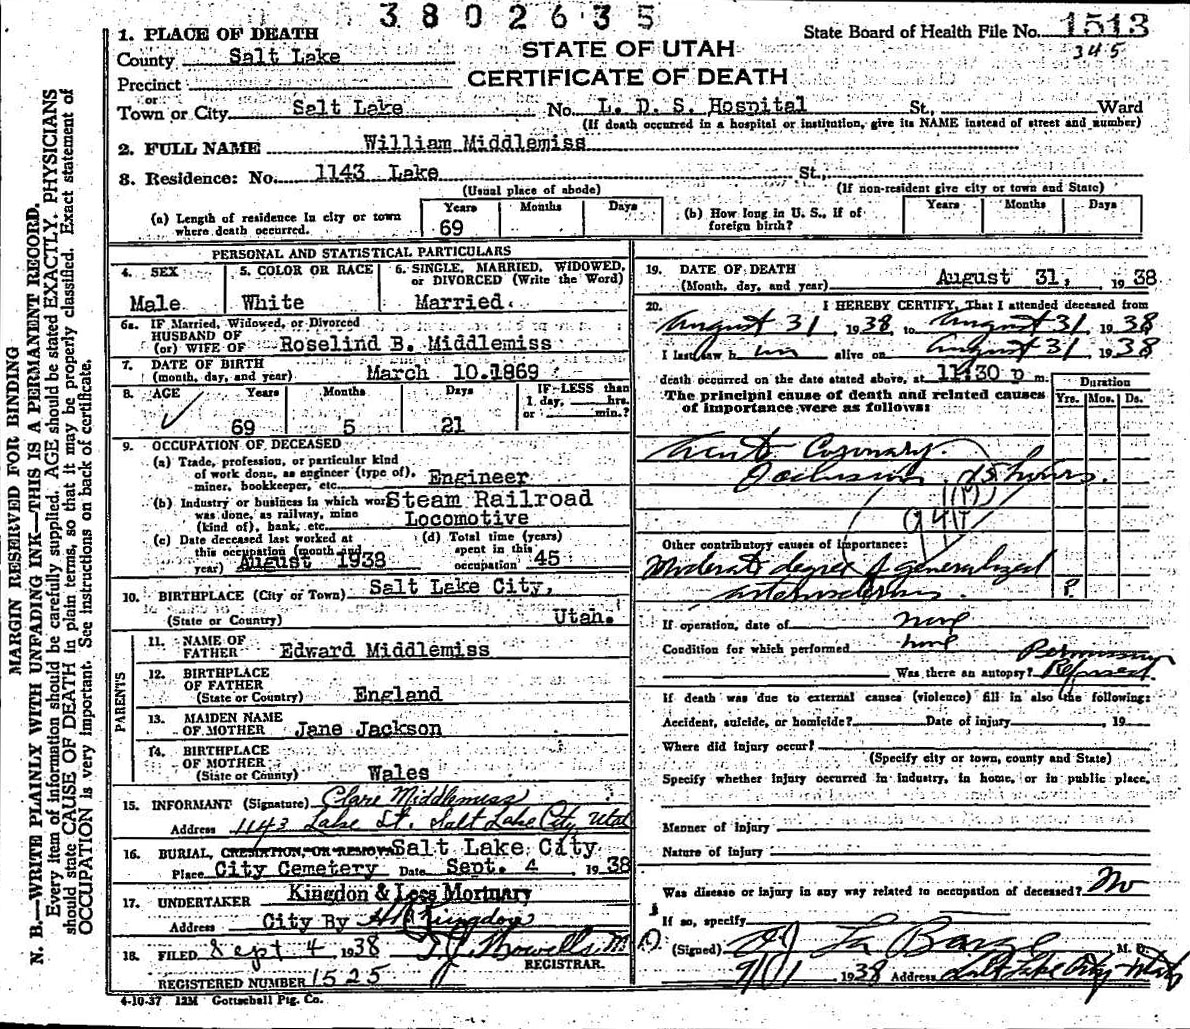 3802635
1. PLACE OF DEATH
State Board of Health File No. 1513
345
County Salt Lake
STATE OF UTAH
Precinct
CERTIFICATE OF DEATH
or
Town or City Salt Lake No. L. D. S. Hospital St, Ward
(If death occurred in a hospital or institution, give its NAME instead of street and number)
2. FULL NAME William Middlemiss
3. Residence: No. 1143 Lake St.,
(Usual place of abode) (If non-resident give city or town and State)
(a) Length of residence in city or town where death occurred. Years 69 Months Days
(b) How long in U. S., if of foreign birth? Years Months Days
PERSONAL AND STATISTICAL PARTICULARS
4. SEX Male
5. COLOR OR RACE White
6. SINGLE, MARRIED, WIDOWED, or DIVORCED (Write the Word) Married.
6a. IF Married, Widowed, or Divorced
HUSBAND OF
(or) WIFE OF Roselind B. Middlemiss
7. DATE OF BIRTH
(month, day, and year) March 10.1869
8. AGE Years 69 Months 5 Days 21 IF LESS than 1 day, hrs. or min.?
9. OCCUPATION OF DECEASED
(a) Trade, profession, or particular kind of work done, as engineer (type of), miner, bookkeeper, etc. Engineer
(b) Industry or business in which work was done, as railway, mine (kind of), bank, etc. Steam Railroad Locomotive
(c) Date deceased last worked at this occupation (month and year) August 1938
(d) Total time (years) spent in this occupation 45
10. BIRTHPLACE (City or Town) Salt Lake City,
(State or Country) Utah.
PARENTS
11. NAME OF FATHER Edward Middlemiss
12. BIRTHPLACE OF FATHER
(State or Country) England
13. MAIDEN NAME OF MOTHER Jane Jackson
14. BIRTHPLACE OF MOTHER
(State or County) Wales
15. INFORMANT (Signature) Clare Middlemiss
Address 1143 Lake St. Salt Lake City, Utah
16. BURIAL, CREMATION, OR REMOVAL Salt Lake City
Place City Cemetery Date Sept. 4, 1938
17. UNDERTAKER Kingdon & Lees Mortuary
Address City By Kingdon
18. FILED Sept 4 1938 T.J. Howells M
REGISTRAR.
REGISTERED NUMBER 1525
4-10-37 12M Gottschall Ptg. Co.
19. DATE OF DEATH
(Month, day, and year) August 31, 1938
20. I HEREBY CERTIFY, That I attended deceased from
August 31 1938, to August 31 1938
I last saw him alive on August 31 1938
death occurred on the date stated above, at 11:30 p m.
The principal cause of death and related causes of importance were as follows:
Duration
Yrs. Mos. Ds.
Acute Coronary
Occlusion. 25 hours.
Other contributory causes of importance:
Moderate degree of generalized
arteriosclerosis. ?
If operation, date of none
Condition for which performed none
Was there an autopsy? Permission Refused.
If death was due to external causes (violence) fill in also the following:
Accident, suicide, or homicide? Date of injury , 19
Where did injury occur?
(Specify city or town, county and State)
Specify whether injury occurred in industry, in home, or in public place,
Manner of injury
Nature of Injury
Was disease or injury in any way related to occupation of deceased? No
If so, specify
(Signed) La Barge M. D.
9/1 1938 Address Salt Lake City Utah
MARGIN RESERVED FOR BINDING
N. B.—WRITE PLAINLY WITH UNFADING INK—THIS IS A PERMANENT RECORD.
Every item of information should be carefully supplied. AGE should be stated EXACTLY. PHYSICIANS
should state CAUSE OF DEATH in plain terms, so that it may be properly classified. Exact statement of
OCCUPATION is very important. See instructions on back of certificate.